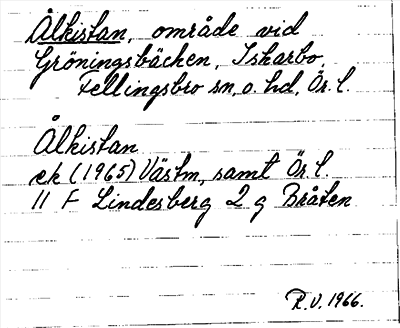 Ålkistan, område vid
Gröningsbäcken, Iskarbo,
Fellingsbro sn, o. hd, Ör. l.
Ålkistan
ek (1965) Västm, samt Ör. l.
11 F Lindesberg 2 g Bråten
R.V. 1966.